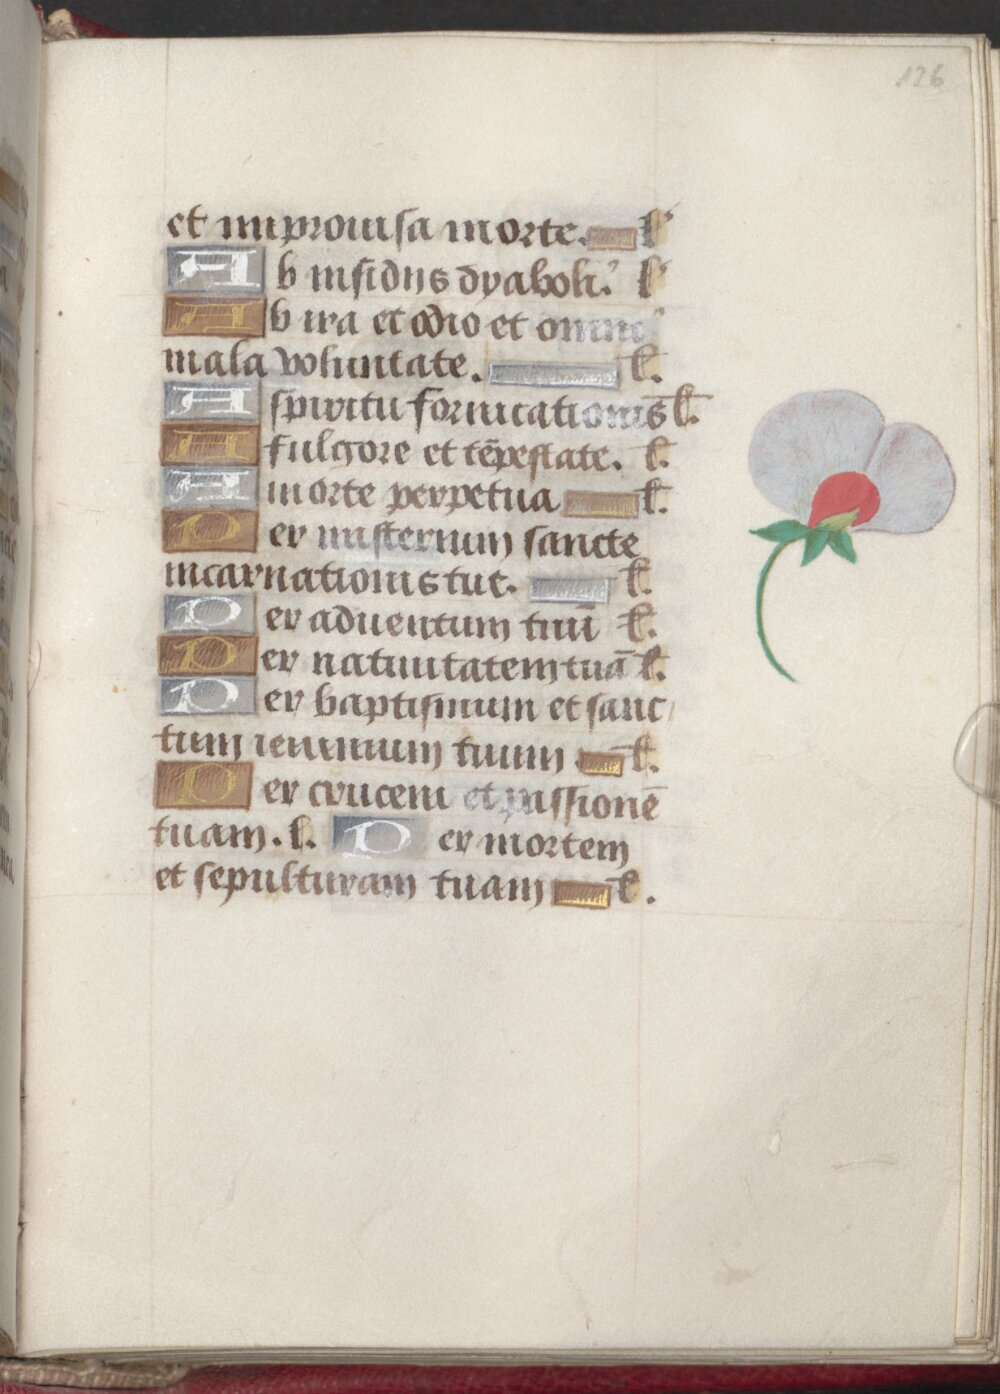 126
et improuisa morte. l'
Ab insidijs dyaboli. l'
Ab ira et odio et omni
mala voluntate. l.
A spiritu fornicationis l.
A fulgore et tēpestate. l.
A morte perpetua l.
Per misterium sancte
incarnationis tue. l.
Per aduentum tuū l.
Per natiuitatem tuā l.
Per baptismum et sanc
tum ieiunium tuum l.
Per crucem et passionē
tuam. l. Per mortem
et sepulturam tuam l.